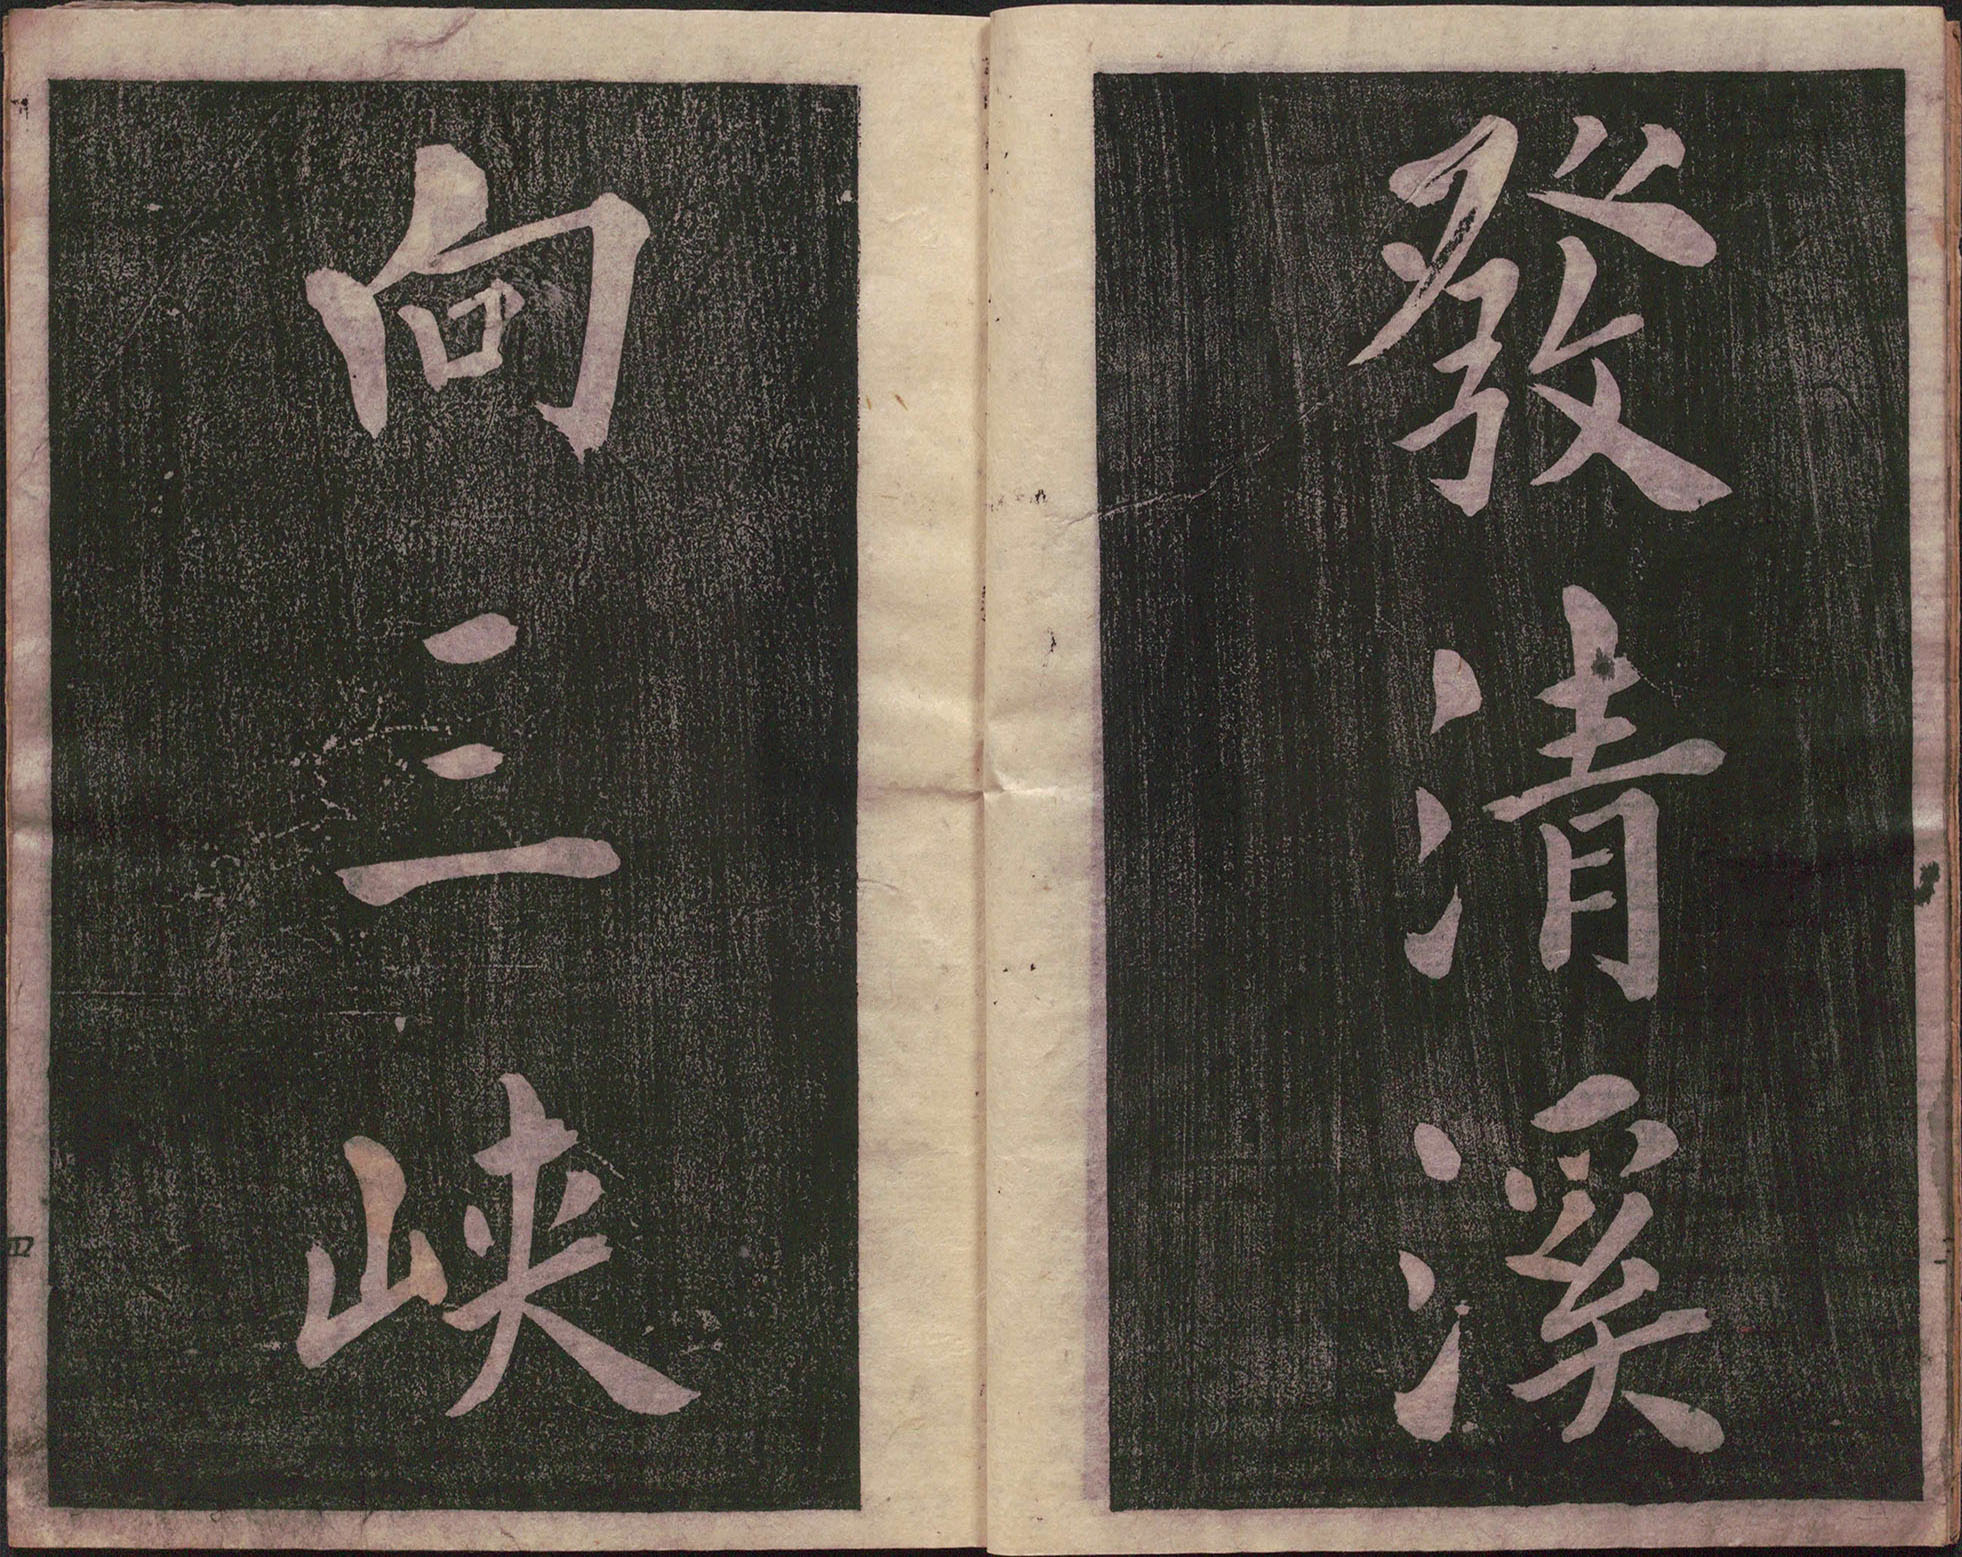 發清溪
向三峽